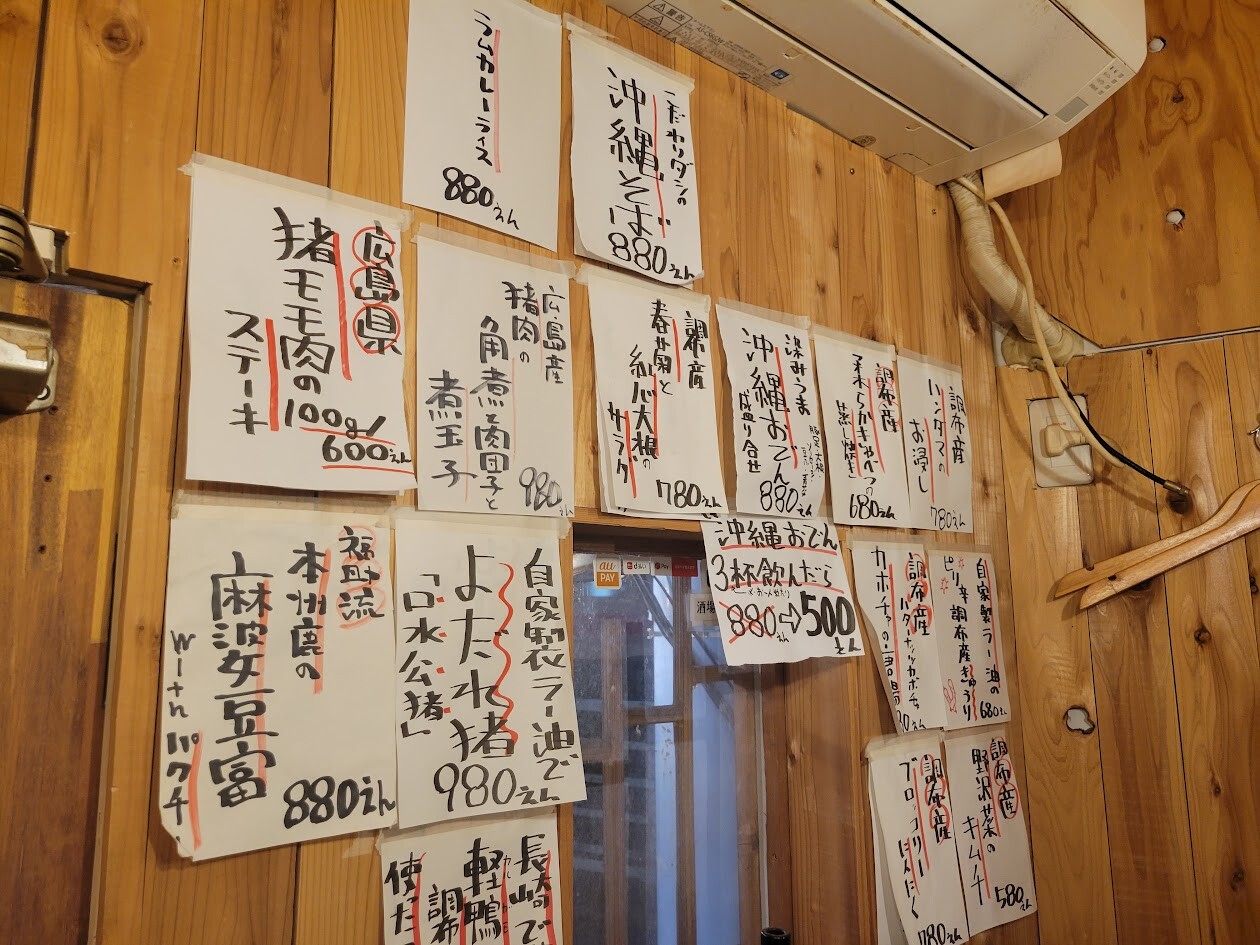 ラムカレーライス
880えん
こだわりダシの
沖縄そば
880えん
広島県
猪モモ肉の
ステーキ
100g/
600えん
広島産
猪肉の
角煮肉団子と
煮玉子
980えん
調布産
春菊と
紅心大根の
サラダ
780えん
染みうま
沖縄おでん
盛り合せ
880えん
調布産
柔らかキャベツの
蒸し焼き
680えん
調布産
ハンダマの
お浸し
780えん
沖縄おでん
3杯飲んだら
880えん⇨500えん
福野流
本州鹿の
麻波女豆富
withパクチー
880えん
自家製ラー油で
よだれ猪
「口水公猪」
980えん
調布産
バターナッツカボチャ
カボチャの
自家製ラー油の
ピリ辛調布産きゅうり
680えん
調布産
ブロッコリー
にんにく
780えん
調布産
野沢菜の
キムチ
580えん
長崎で
軽鴨
調布
使った
au
PAY
d払い
Pay
酒場